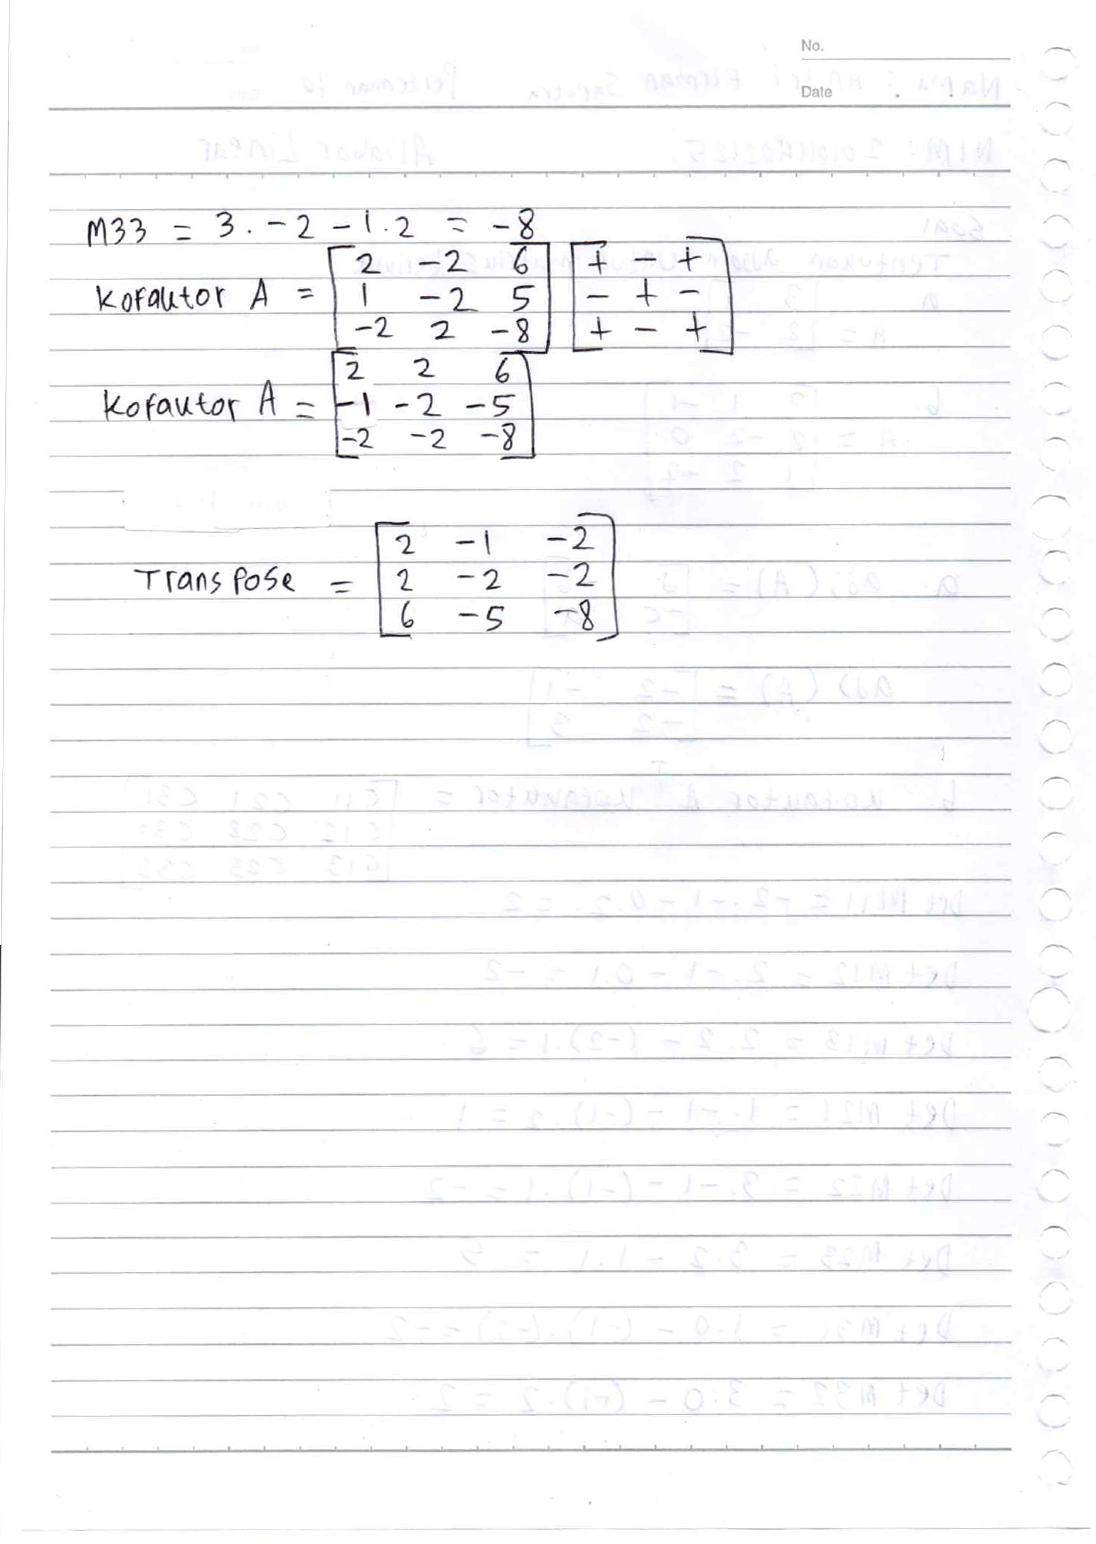 No.
Date
M33 = 3. -2 - 1.2 = -8
Kofautor A = [2 -2 6] [+ +]
[1 -2 5] [- + -]
[-2 2 -8] [+ - +]
Kofautor A = [2 2 6]
[-1 -2 -5]
[-2 -2 -8]
Transpose = [2 -1 -2]
[2 -2 -2]
[6 -5 -8]